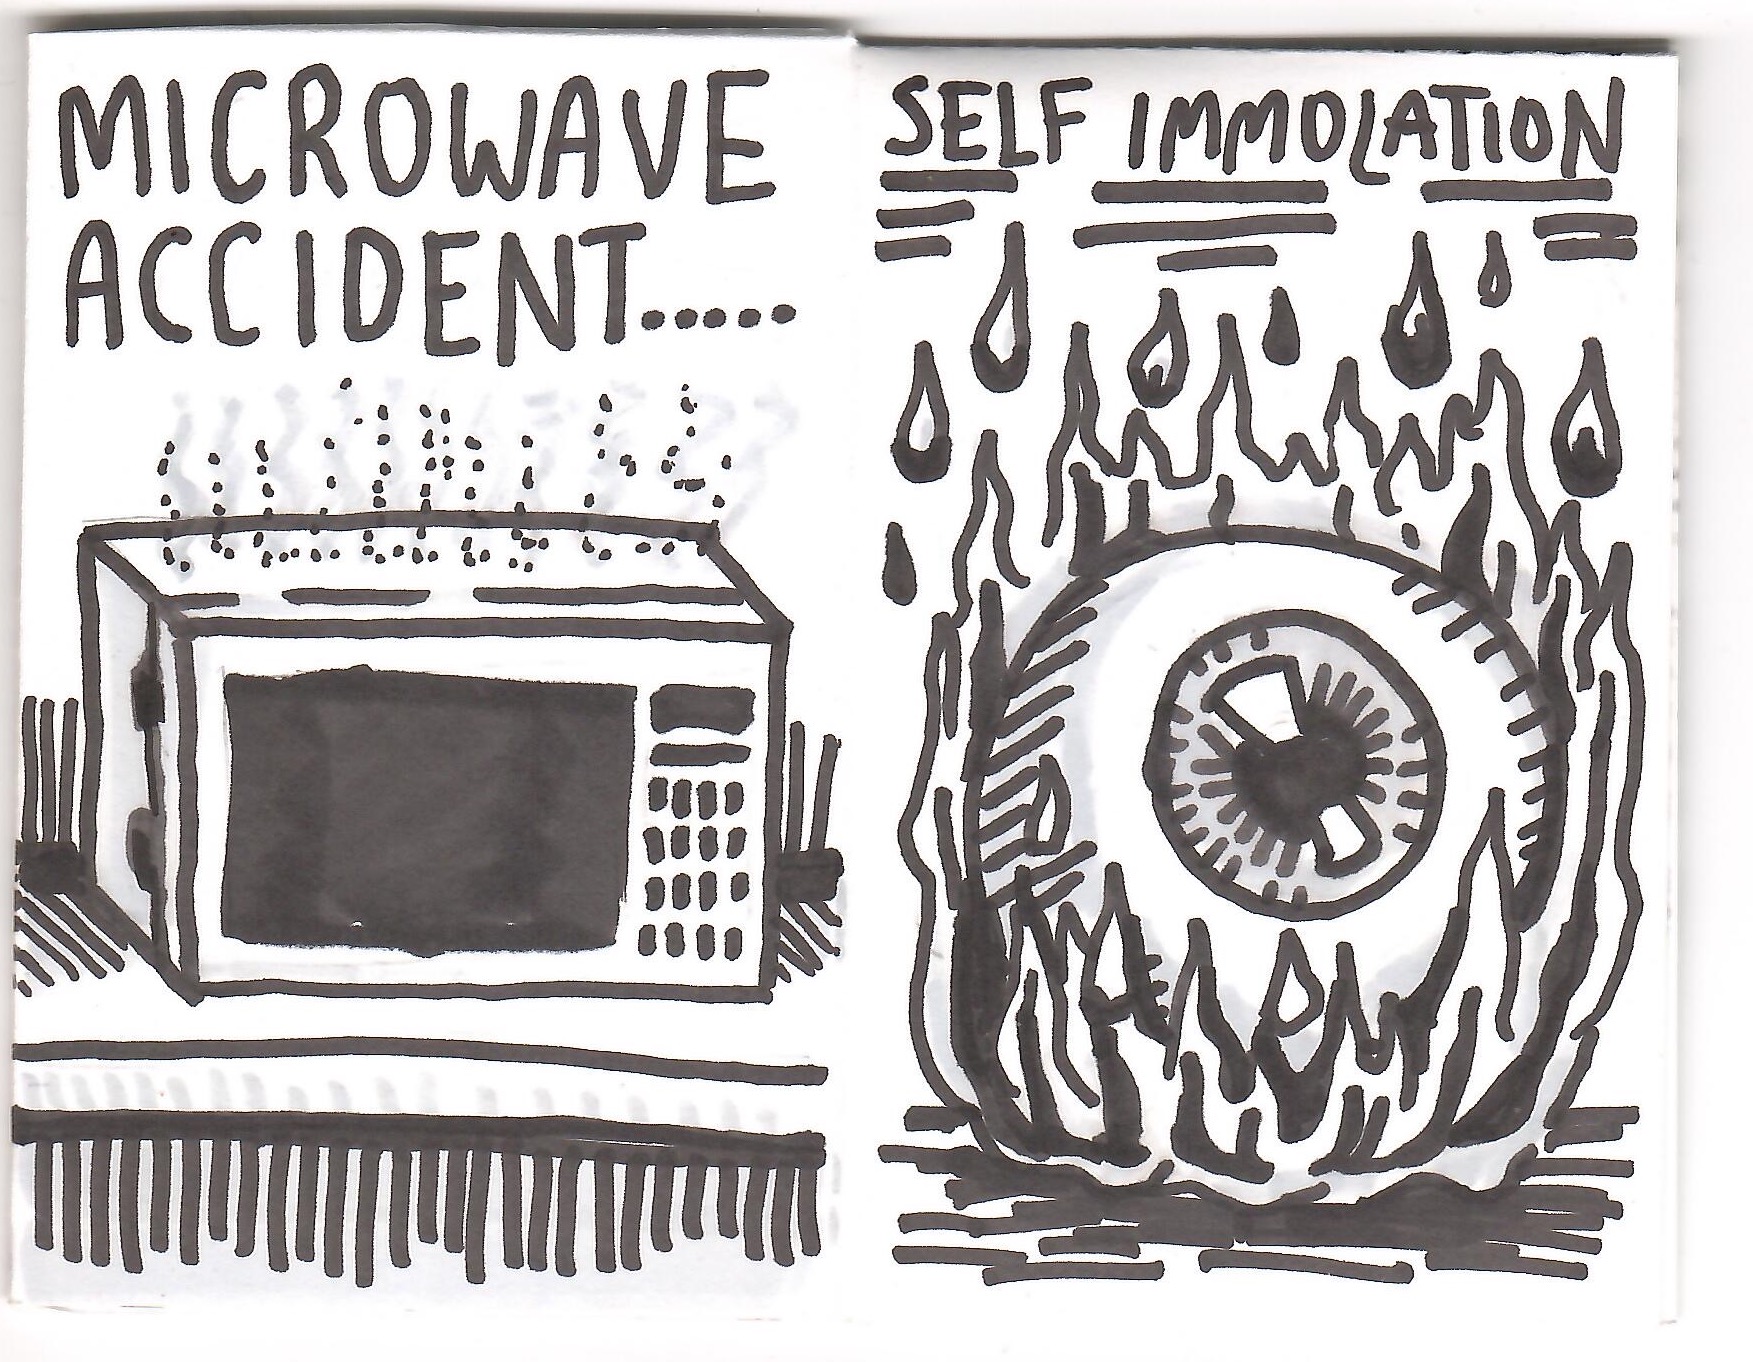 MICROWAVE
ACCIDENT.....
SELF IMMOLATION